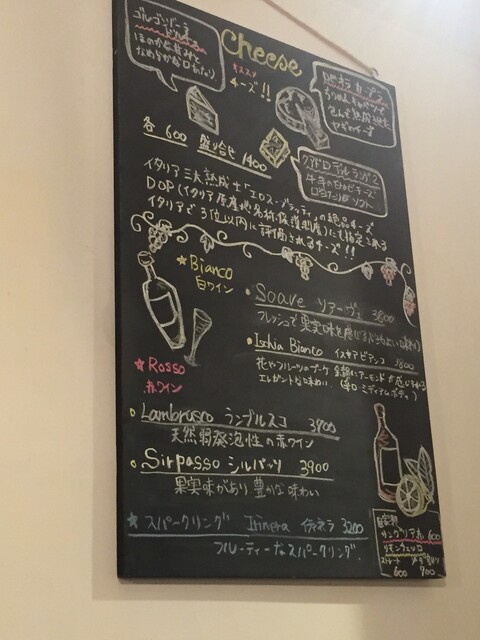 ゴルゴンゾーラ
ドルチェ
ほのかな甘みと
なめらかな口あたり
Cheese
オススメ
チーズ!!
各600 盛り合せ 1400
クアドロ デル ランゴ
牛乳の白カビチーズ
口当たりは ソフト
イタリア三大熟成士「エロス・ブラッティ」の絶品チーズ
DOP(イタリア原産地名称保護制度)にも指定される
イタリアで3位以内に評価されるチーズ!!
★Bianco
白ワイン
Soave ソアーヴェ 3800
フレッシュで果実味を感じる
Ischia Bianco イスキア ビアンコ 3800
花やフルーツのブーケ
エレガントな味わい (辛口 ミディアムボディ)
★Rosso
赤ワイン
Lambrusco ランブルスコ 3900
天然弱発泡性の赤ワイン
Sirpasso シルパッソ 3900
果実味があり 豊かな味わい
★スパークリング 3200
フルーティーなスパークリング
自家製
サングリア 赤 600
リモンチェッロ
ストレート
600 700